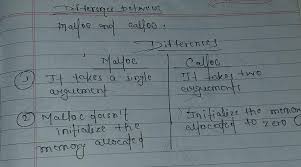 Difference between
Malloc and calloc.
Differences
Malloc Calloc
① It takes a single It takes two
arguement arguements
② Malloc doesn't Initialize the memo
initialize the allocated to zero
memory allocated